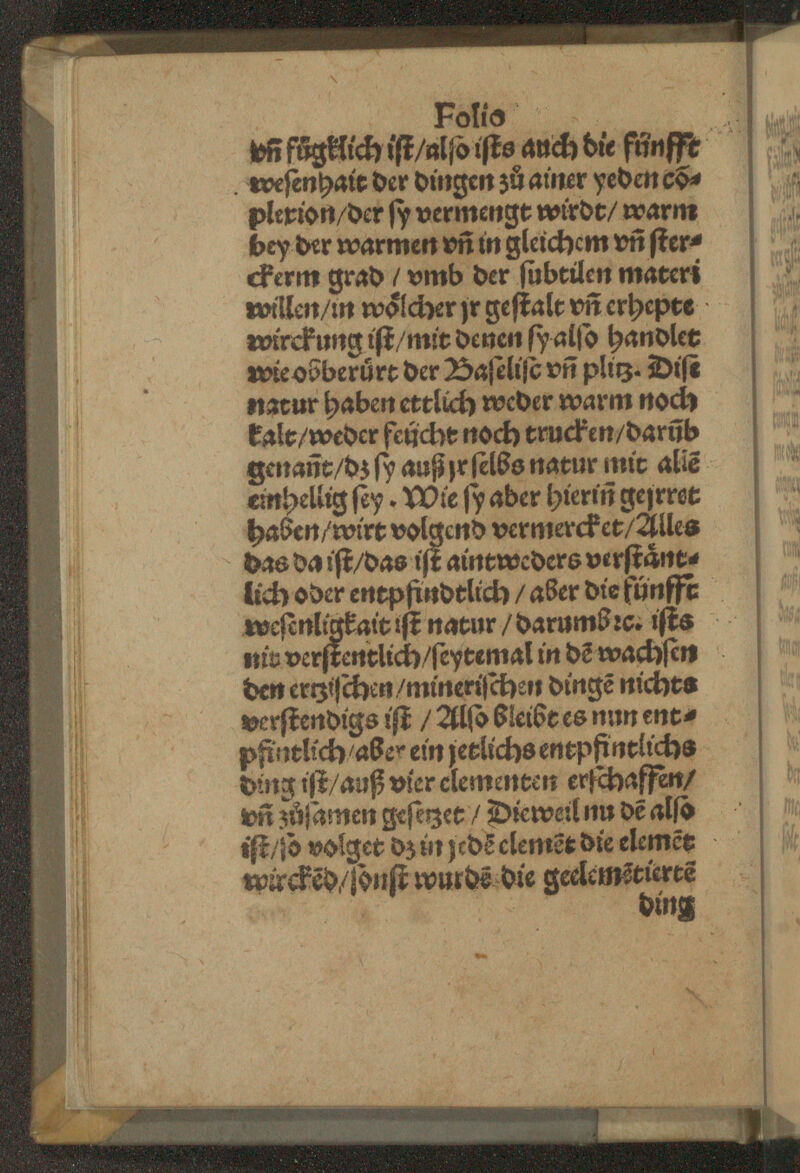 Folio
vñ fůgklich iſt/alſo iſts auch die fünfft
weſenhait der dingen zů ainer yeden cõ⸗
plexion/der ſy vermengt wirdt/ warm
bey der warmen vñ in gleichem vñ ſter⸗
ckerm grad / vmb der ſubtilen materi
willen/in woͤlcher jr geſtalt vñ erhepte
wirckung iſt/mit denen ſy alſo handlet
wie obberuͤrt der Baſeliſc vñ plitz. Diſe
natur haben ettlich weder warm noch
kalt/weder feücht noch trucken/darũb
genañt/dz ſy auß jr ſelbs natur mit allẽ
einhellig ſey. Wie ſy aber hieriñ gejrret
haben/wirt volgend vermercket/Alles
das da iſt/das iſt aintweders verſtaͤnt⸗
lich oder entpfindtlich / aber die fünfft
weſenligkait iſt natur / darumb ꝛc. iſts
nit verſtentlich/ſeytemal in dẽ wachſen
den ertziſchen/mineriſchen dingẽ nichts
verſtendigs iſt / Alſo bleibt es nun ent⸗
pfintlich/aber ein jetlichs entpfintlichs
ding iſt/auß vier elementen erſchaffen/
vñ zůſamen geſetzet / Dieweil nu dẽ alſo
iſt/ſo volget dz in jedẽ elemẽt die elemẽt
wirckẽd/ſonſt wurdẽ die geelemẽtiertẽ
ding